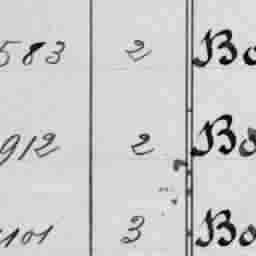 583 2 Bo
912 2 Bo
1101 3 Bo